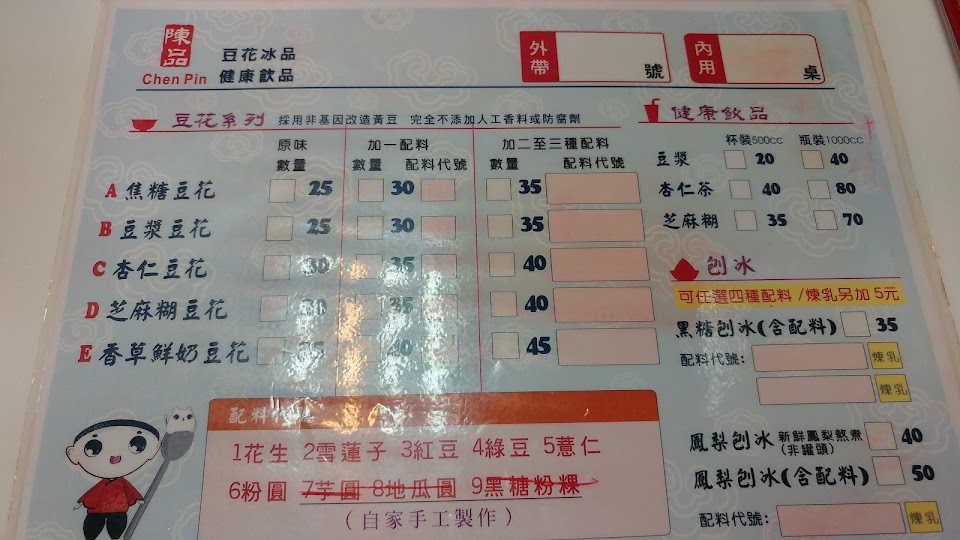 陳品
Chen Pin
豆花冰品
健康飲品
外帶 號
內用 桌
豆花系列 採用非基因改造黃豆 完全不添加人工香料或防腐劑
原味 加一配料 加二至三種配料
數量 數量 配料代號 數量 配料代號
A 焦糖豆花 25 30 35
B 豆漿豆花 25 30 35
C 杏仁豆花 30 35 40
D 芝麻糊豆花 40
E 香草鮮奶豆花 35 40 45
配料
1花生 2雪蓮子 3紅豆 4綠豆 5薏仁
6粉圓 7芋圓 8地瓜圓 9黑糖粉粿
(自家手工製作)
健康飲品
杯裝500cc 瓶裝1000cc
豆漿 20 40
杏仁茶 40 80
芝麻糊 35 70
刨冰
可任選四種配料 /煉乳另加 5元
黑糖刨冰(含配料) 35
配料代號: 煉乳
煉乳
鳳梨刨冰 新鮮鳳梨熬煮(非罐頭) 40
鳳梨刨冰(含配料) 50
配料代號: 煉乳